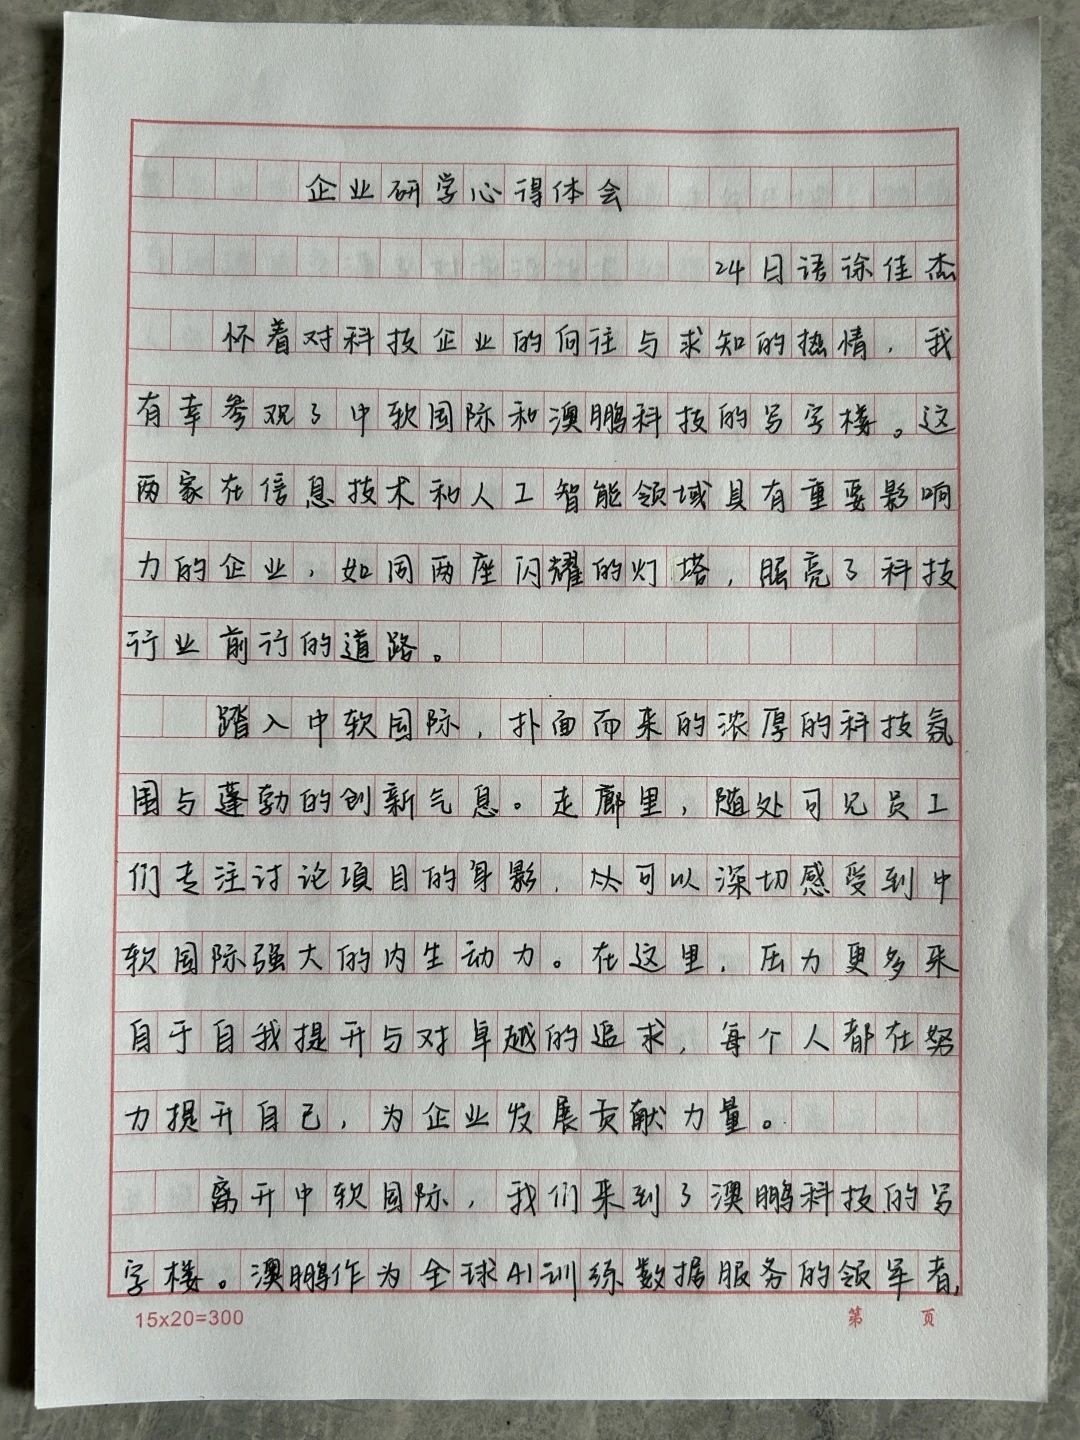 企业研学心得体会
24日语徐佳杰
怀着对科技企业的向往与求知的热情，我
有幸参观了中软国际和澳鹏科技的写字楼。这
两家在信息技术和人工智能领域具有重要影响
力的企业，如同两座闪耀的灯塔，照亮了科技
行业前行的道路。
踏入中软国际，扑面而来的浓厚的科技氛
围与蓬勃的创新气息。走廊里，随处可见员工
们专注讨论项目的身影，从可以深切感受到中
软国际强大的内生动力。在这里，压力更多来
自于自我提升与对卓越的追求，每个人都在努
力提升自己，为企业发展贡献力量。
离开中软国际，我们来到了澳鹏科技的写
字楼。澳鹏作为全球AI训练数据服务的领军者，
15x20=300
第 页